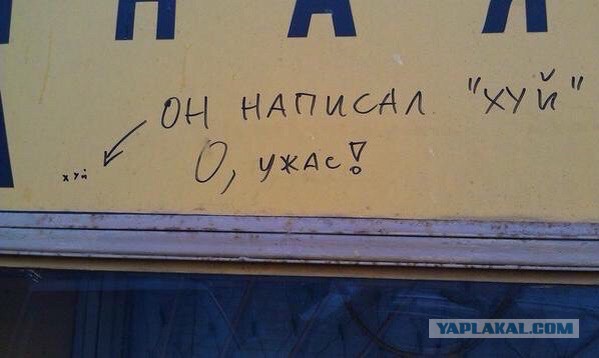 НАЯ
ОН НАПИСАЛ "ХУЙ"
О, УЖАС!
хуй
YAPLAKAL.COM